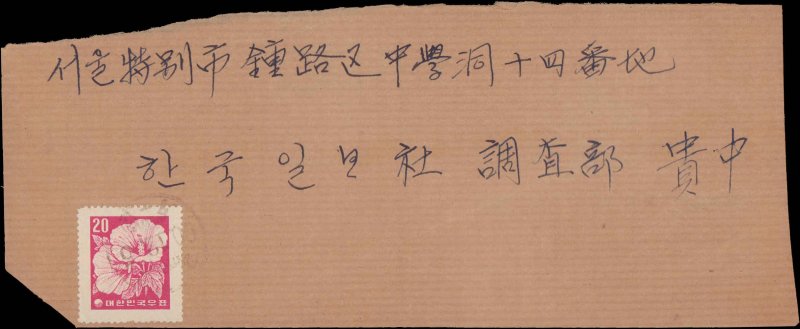 서울特別市 鍾路区 中學洞 十四番地
한국일보社 調査部 貴中
20
대한민국우표